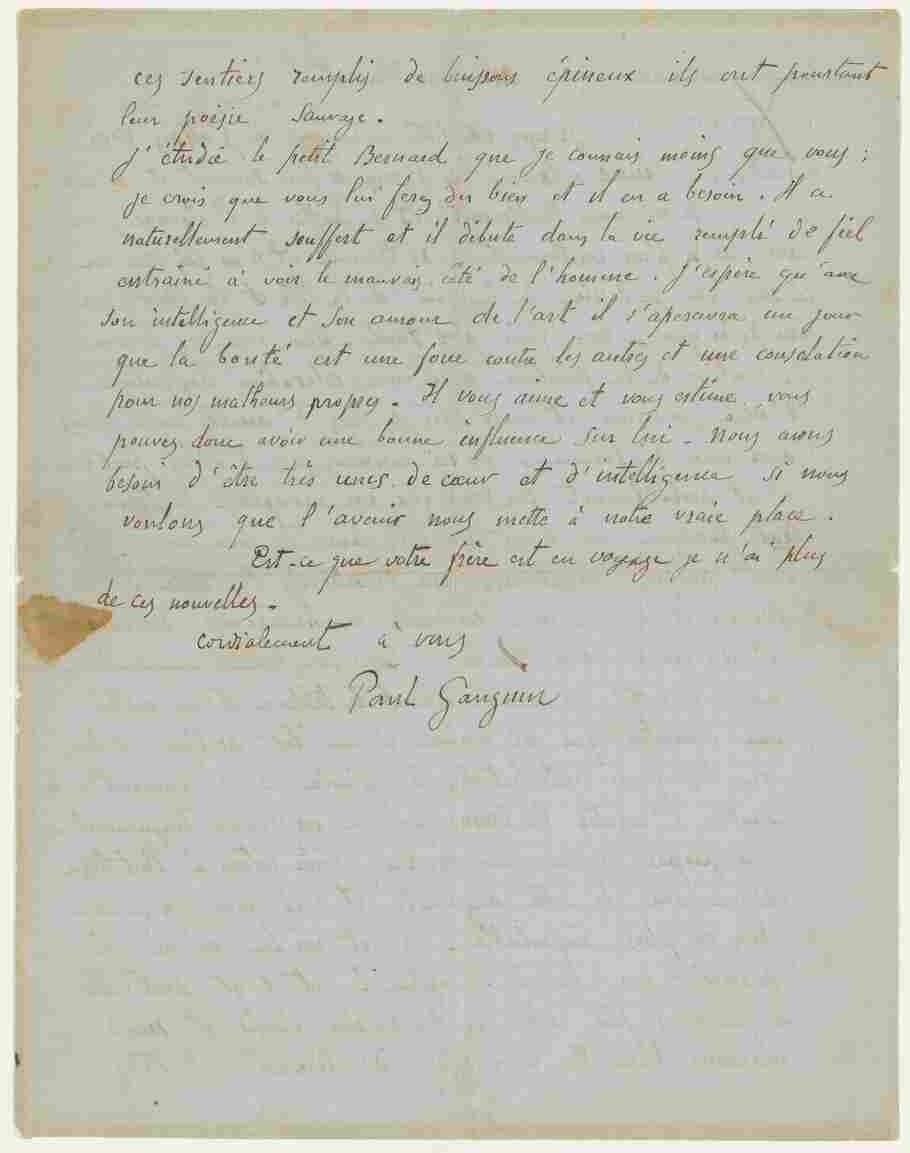 ces sentiers remplis de buissons épineux ils ont pourtant
leur poësie sauvage.
J'étudie le petit Bernard que je connais moins que vous ;
je crois que vous lui ferez du bien et il en a besoin. Il a
naturellement souffert et il débute dans la vie rempli de fiel
entraîné à voir le mauvais côté de l'homme. J'espère qu'avec
son intelligence et son amour de l'art il s'apercevra un jour
que la bonté est une force contre les autres et une consolation
pour nos malheurs propres. Il vous aime et vous estime vous
pouvez donc avoir une bonne influence sur lui - Nous avons
besoin d'être très unis de cœur et d'intelligence si nous
voulons que l'avenir nous mette à notre vraie place.
Est-ce que votre frère est en voyage je n'ai plus
de ces nouvelles.
Cordialement à vous
Paul Gauguin